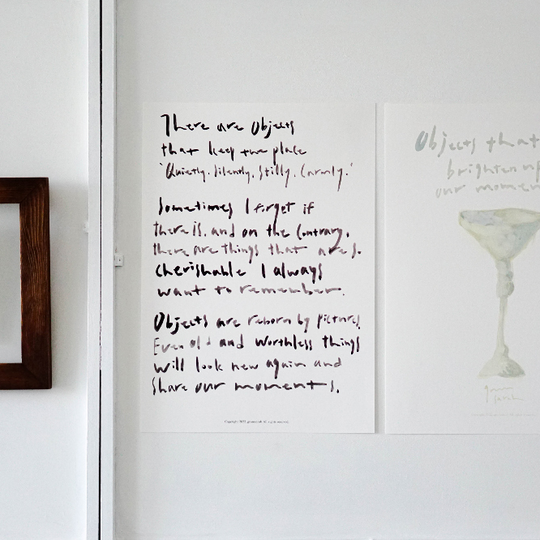 There are Objects
that keep the place
'Quietly. Silently. Stilly. Carmly.'
Sometimes I forget if
there is. and on the contrary,
there are things that are s.
cherishable I always
want to remember.
Objects are reborn by pictures.
Even old and worthless things
will look new again and
share our moments.
Objects that
brighten up
our momen